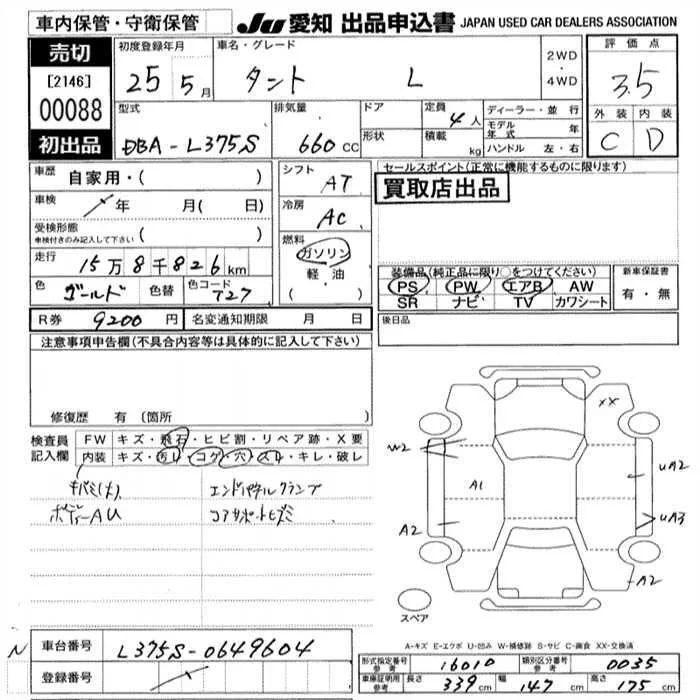 車内保管・守衛保管
JU 愛知 出品申込書 JAPAN USED CAR DEALERS ASSOCIATION
売切
[2146]
00088
初出品
初度登録年月
25 5月
車名・グレード
タント L
2WD
・
4WD
評価点
3.5
外装 内装
C D
型式
DBA-L375S
排気量
660 cc
ドア
形状
定員
4人
積載
kg
ディーラー・並行
モデル年式 年
ハンドル 左・右
車歴 自家用・( )
車検 年 月( 日)
受検形態
車検付きのみ記入して下さい ( )
走行 15万8千826km
色 ゴールド 色替 色コード T27
シフト
AT
冷房
AC
燃料
ガソリン
軽・油
( ・ )
セールスポイント(正常に機能するものに限ります)
買取店出品
装備品(純正品に限り○をつけてください)
PS PW エアB AW
SR ナビ TV カワシート
新車保証書
有・無
R券 9200円 名変通知期限 月 日
後日品
注意事項申告欄(不具合内容等は具体的に記入して下さい)
修復歴 有(箇所
検査員記入欄
FW キズ・飛石・ヒビ割・リペア跡・X要
内装 キズ・汚レ・コゲ・穴・スレ・キレ・破レ
キバミ(大) エンドパネルクランプ
ボデーAU コアサポートヒズミ
XX
W2
A1
UA2
A2
UA3
A2
スペア
A-キズ E-エクボ U-凹み W-補修跡 S-サビ C-腐食 XX-交換済
N 車台番号 L375S-0649604
登録番号
形式指定番号
参考 16010
類別区分番号
参考 0035
車庫証明用
参考 長さ 339cm 幅 147cm 高さ 175cm